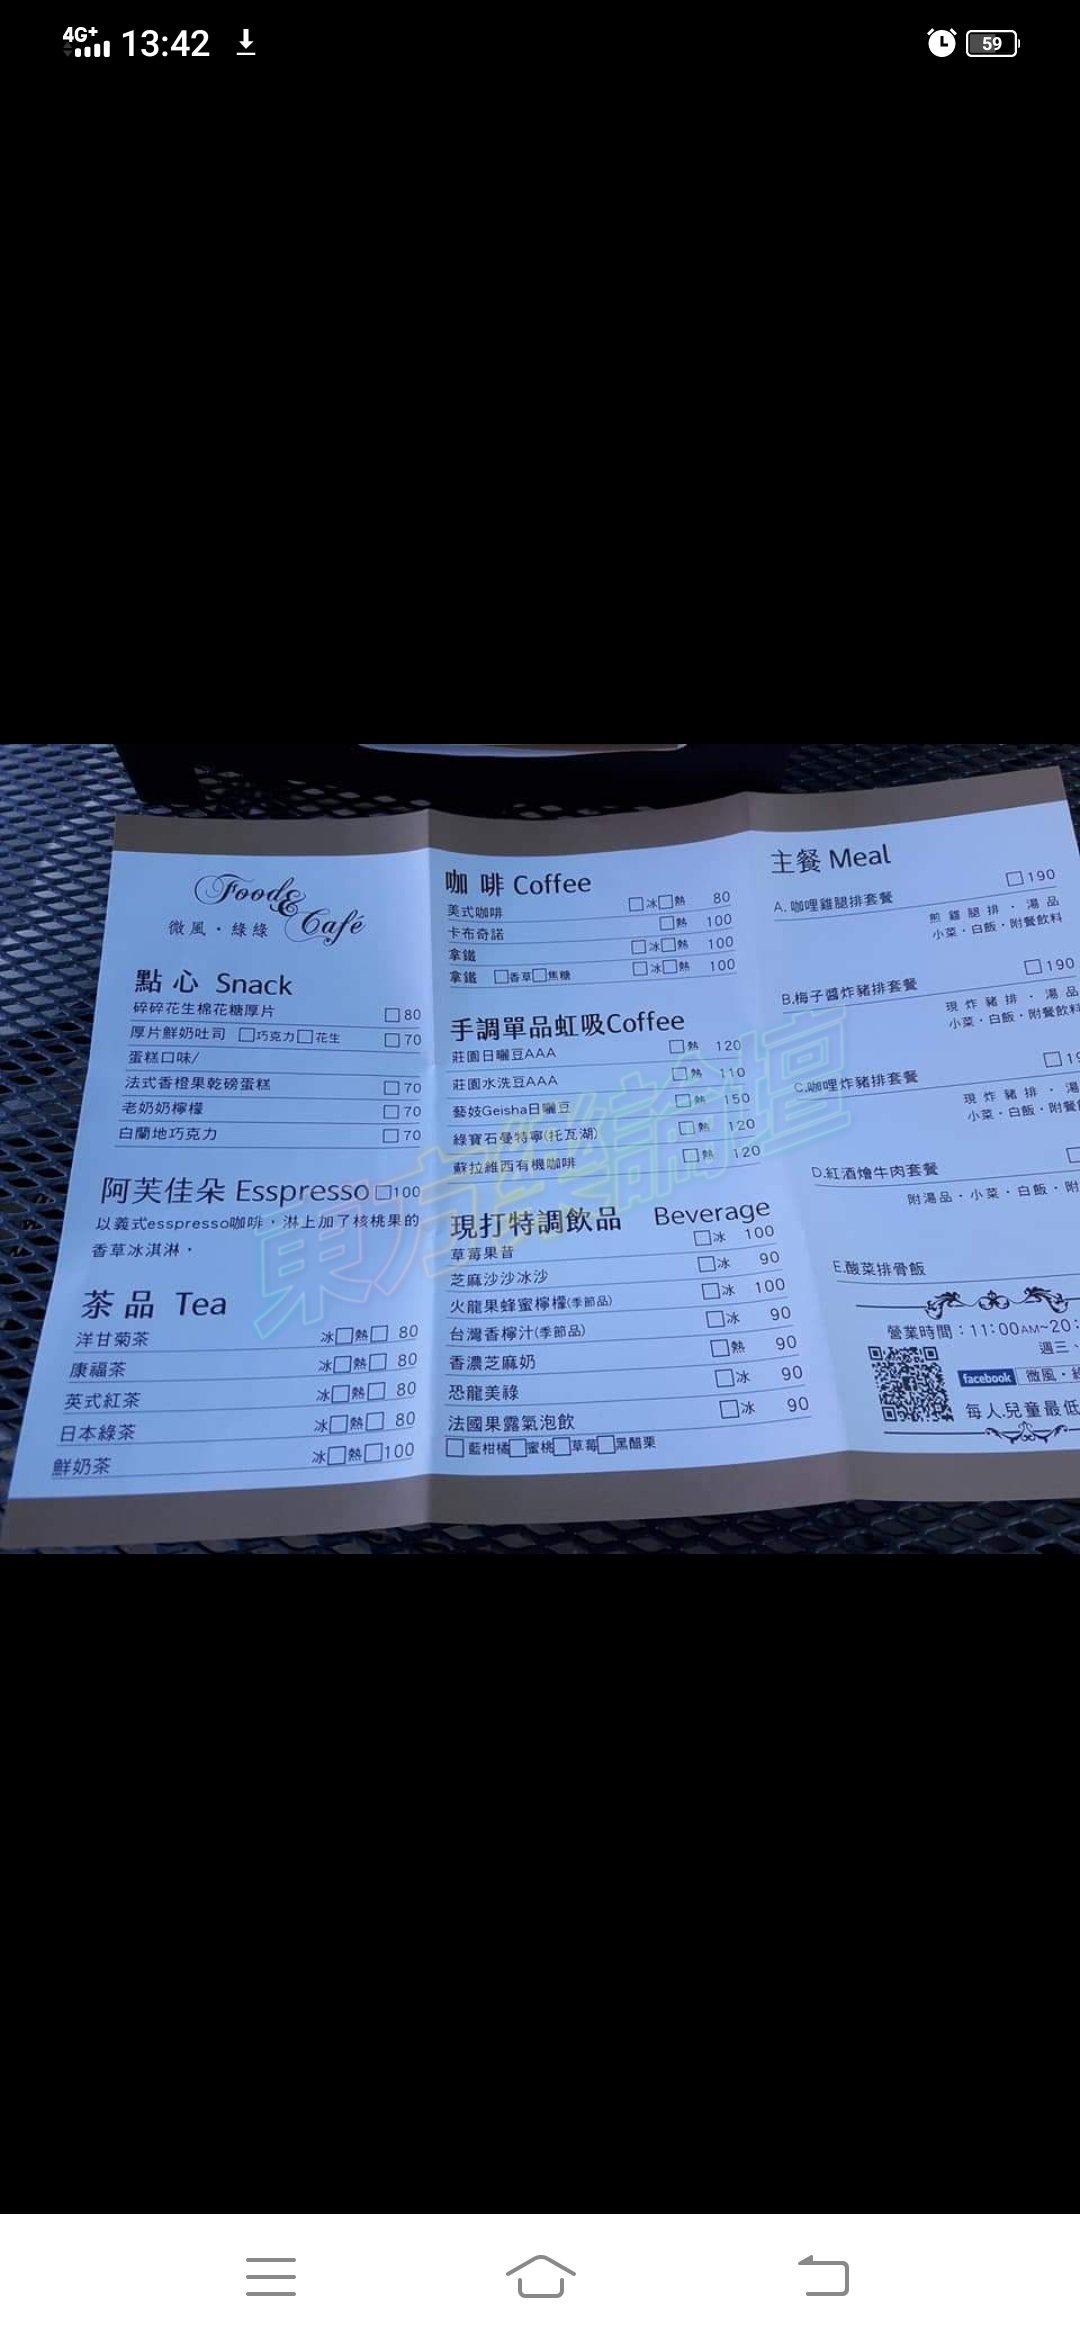 4G+ 13:42
59
Food & Café
微風·綠綠
點心 Snack
碎碎花生棉花糖厚片 □80
厚片鮮奶吐司 □巧克力□花生 □70
蛋糕口味/
法式香橙果乾磅蛋糕 □70
老奶奶檸檬 □70
白蘭地巧克力 □70
阿芙佳朵 Esspresso □100
以義式esspresso咖啡，淋上加了核桃果的
香草冰淇淋·
茶品 Tea
洋甘菊茶 冰□熱□ 80
康福茶 冰□熱□ 80
英式紅茶 冰□熱□ 80
日本綠茶 冰□熱□ 80
鮮奶茶 冰□熱□100
咖啡 Coffee
美式咖啡 □冰□熱 80
卡布奇諾 □熱 100
拿鐵 □冰□熱 100
拿鐵 □香草□焦糖 □冰□熱 100
手調單品虹吸Coffee
莊園日曬豆AAA □熱 120
莊園水洗豆AAA □熱 110
藝妓Geisha日曬豆 □熱 150
綠寶石曼特寧(托瓦湖) □熱 120
蘇拉維西有機咖啡 □熱 120
現打特調飲品 Beverage
草莓果昔 □冰 100
芝麻沙沙冰沙 □冰 90
火龍果蜂蜜檸檬(季節品) □冰 100
台灣香檸汁(季節品) □冰 90
香濃芝麻奶 □熱 90
恐龍美祿 □冰 90
法國果露氣泡飲 □冰 90
□藍柑橘□蜜桃□草莓□黑醋栗
主餐 Meal
A. 咖哩雞腿排套餐 □190
煎雞腿排·湯品
小菜·白飯·附餐飲料
B.梅子醬炸豬排套餐 □190
現炸豬排·湯品
小菜·白飯·附餐飲料
C.咖哩炸豬排套餐 □19
現炸豬排·湯
小菜·白飯·附餐
D.紅酒燴牛肉套餐 □
附湯品·小菜·白飯·附
E.酸菜排骨飯
營業時間：11:00AM~20:
週三、
facebook 微風·綠
每人.兒童最低
東方樂論壇